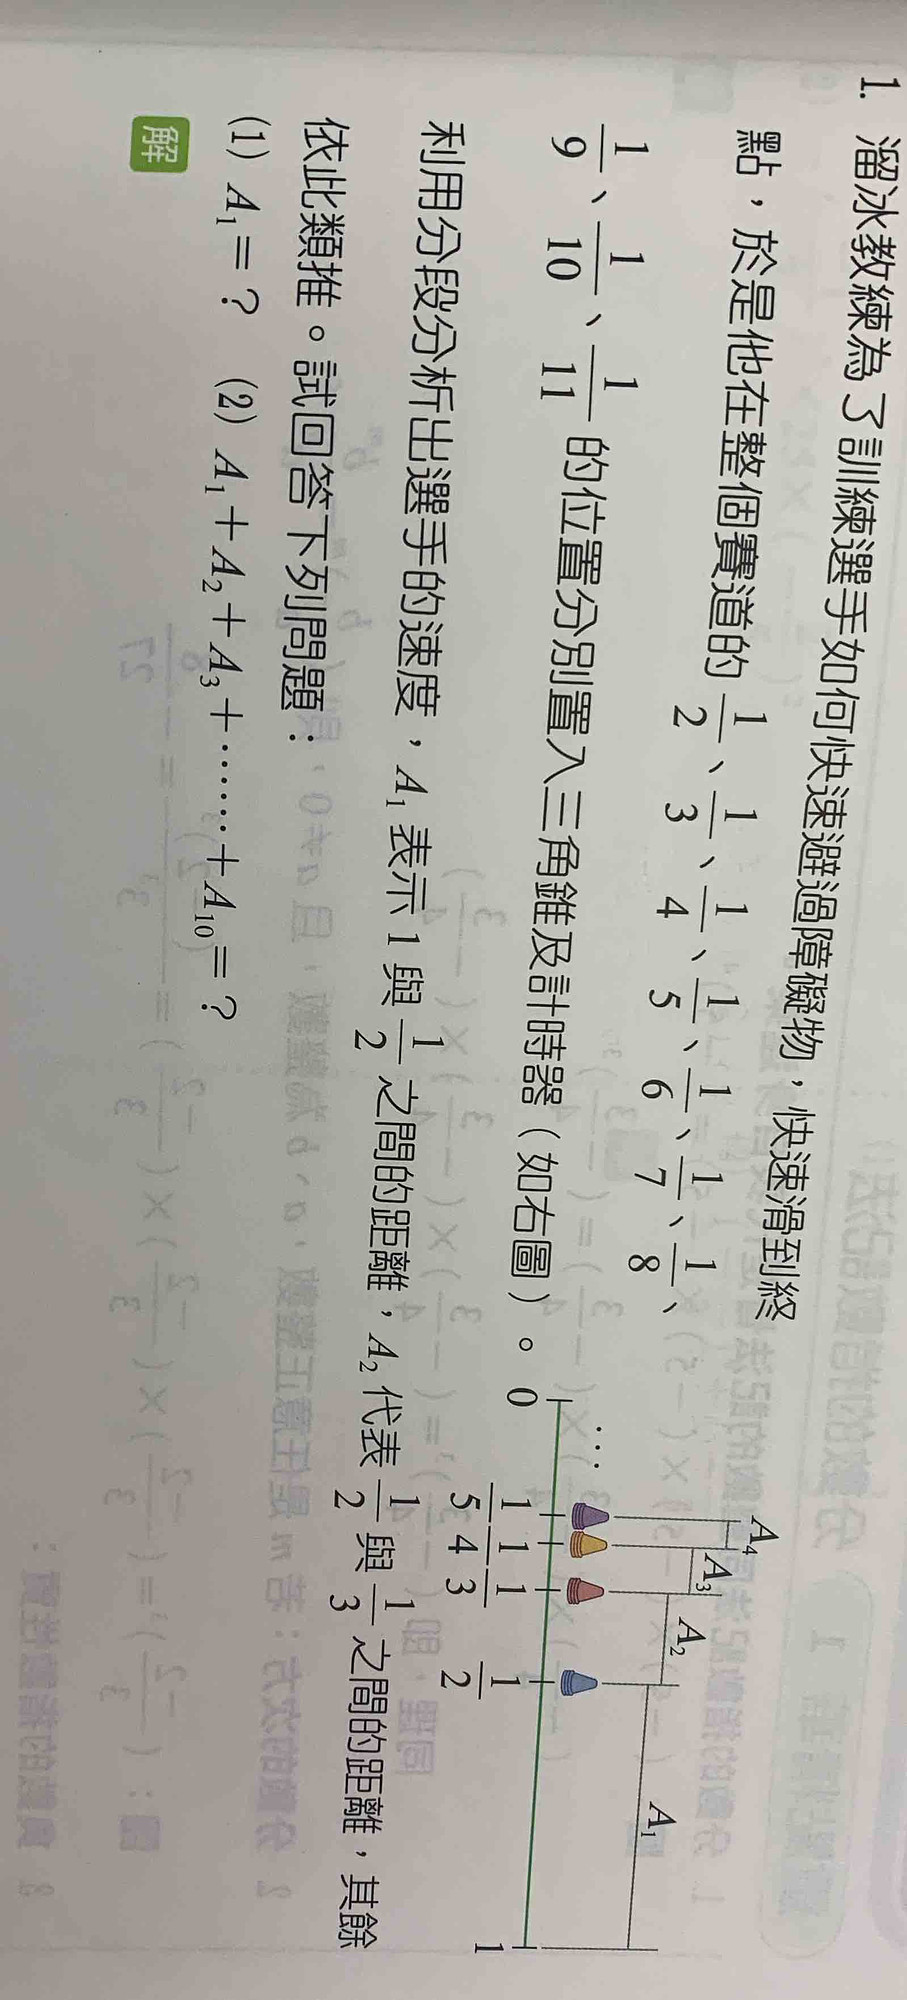 1. 溜冰教練為了訓練選手如何快速避過障礙物，快速滑到終
點，於是他在整個賽道的 1/2、1/3、1/4、1/5、1/6、1/7、1/8、
1/9、1/10、1/11 的位置分別置入三角錐及計時器（如右圖）。
利用分段分析出選手的速度，A₁ 表示 1 與 1/2 之間的距離，A₂ 代表 1/2 與 1/3 之間的距離，其餘
依此類推。試回答下列問題：
(1) A₁＝？ (2) A₁＋A₂＋A₃＋……＋A₁₀＝？
解
A₄
A₃
A₂
A₁
…
0 1/5 1/4 1/3 1/2 1